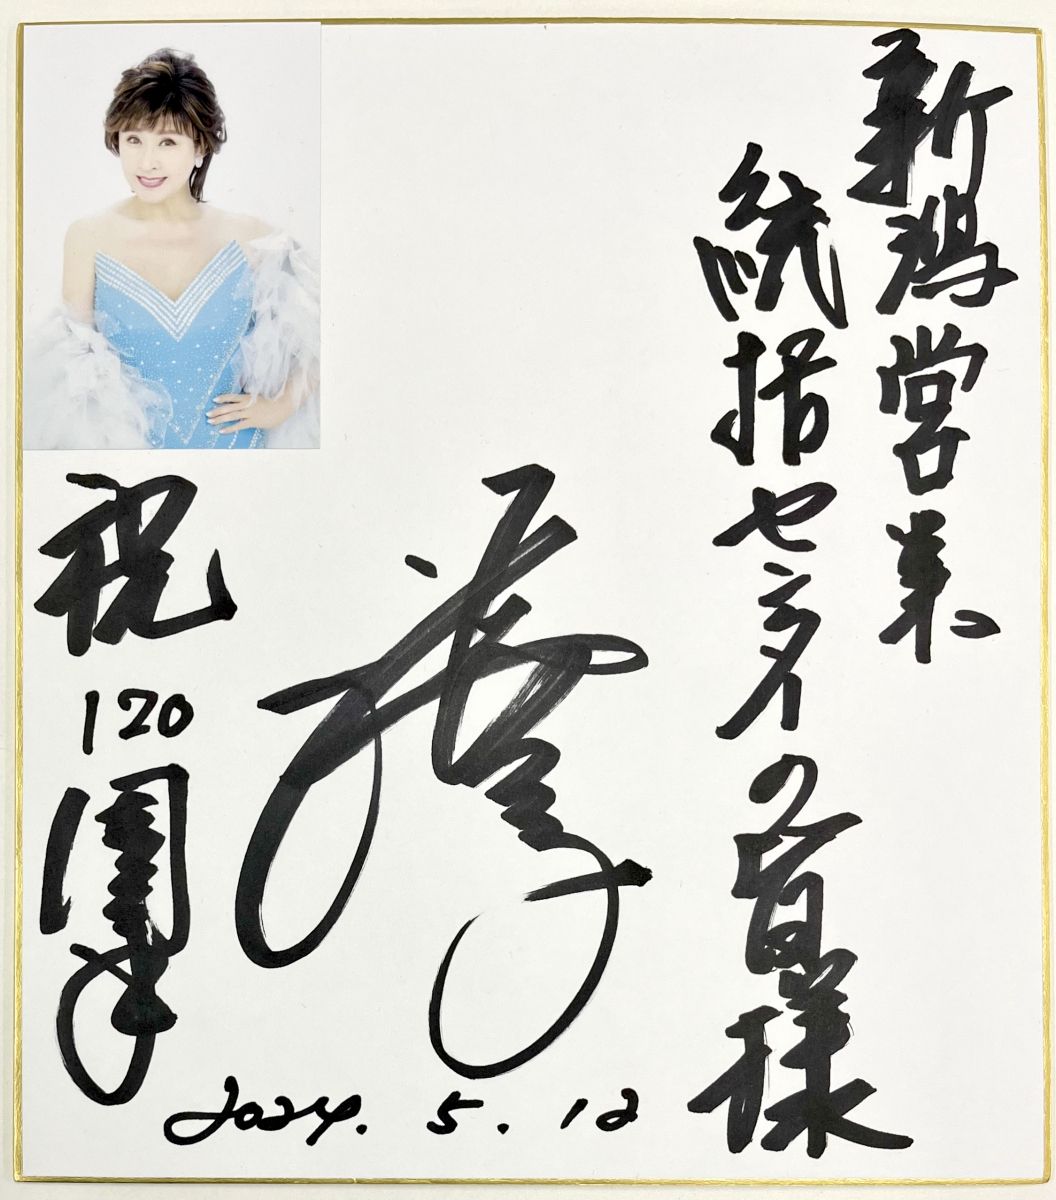 新潟営業
統括センターの皆様
祝
120
周年
2024. 5. 12